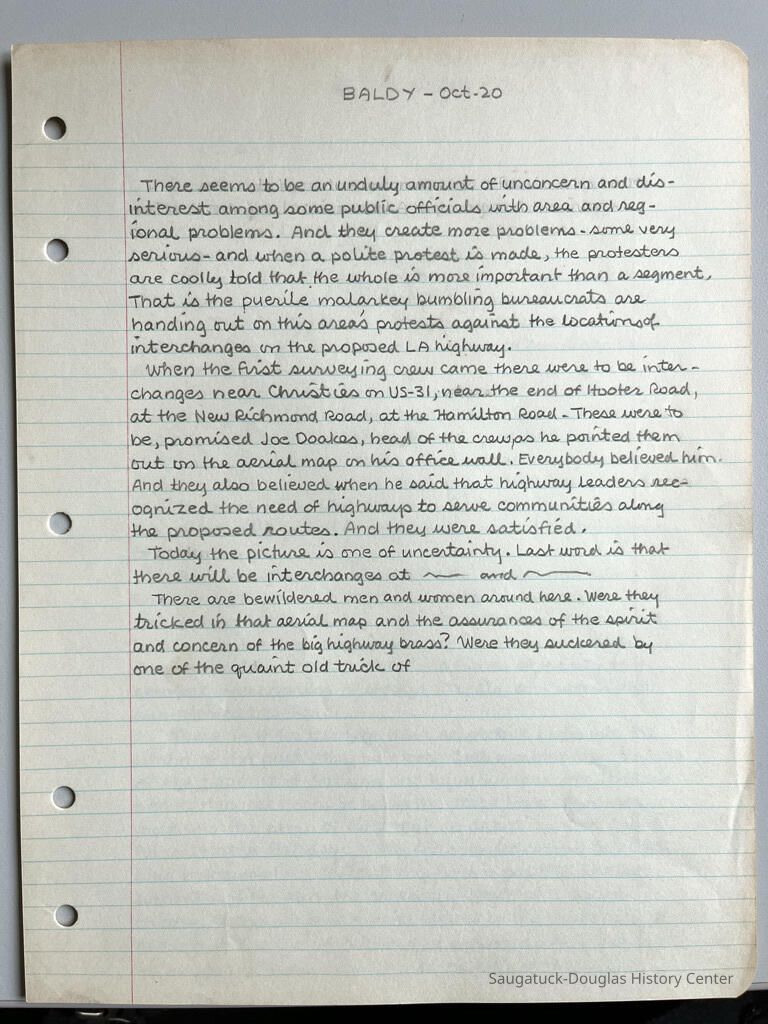 BALDY - Oct-20
There seems to be an unduly amount of unconcern and dis-
interest among some public officials with area and reg-
ional problems. And they create more problems - some very
serious - and when a polite protest is made, the protesters
are coolly told that the whole is more important than a segment.
That is the puerile malarkey bumbling bureaucrats are
handing out on this area's protests against the locations of
interchanges on the proposed LA highway.
When the first surveying crew came there were to be inter-
changes near Christies on US-31, near the end of Hooter Road,
at the New Richmond Road, at the Hamilton Road - These were to
be, promised Joe Doakes, head of the crew, as he pointed them
out on the aerial map on his office wall. Everybody believed him.
And they also believed when he said that highway leaders rec-
ognized the need of highways to serve communities along
the proposed routes. And they were satisfied.
Today the picture is one of uncertainty. Last word is that
there will be interchanges at and
There are bewildered men and women around here. Were they
tricked in that aerial map and the assurances of the spirit
and concern of the big highway brass? Were they suckered by
one of the quaint old trick of
Saugatuck-Douglas History Center